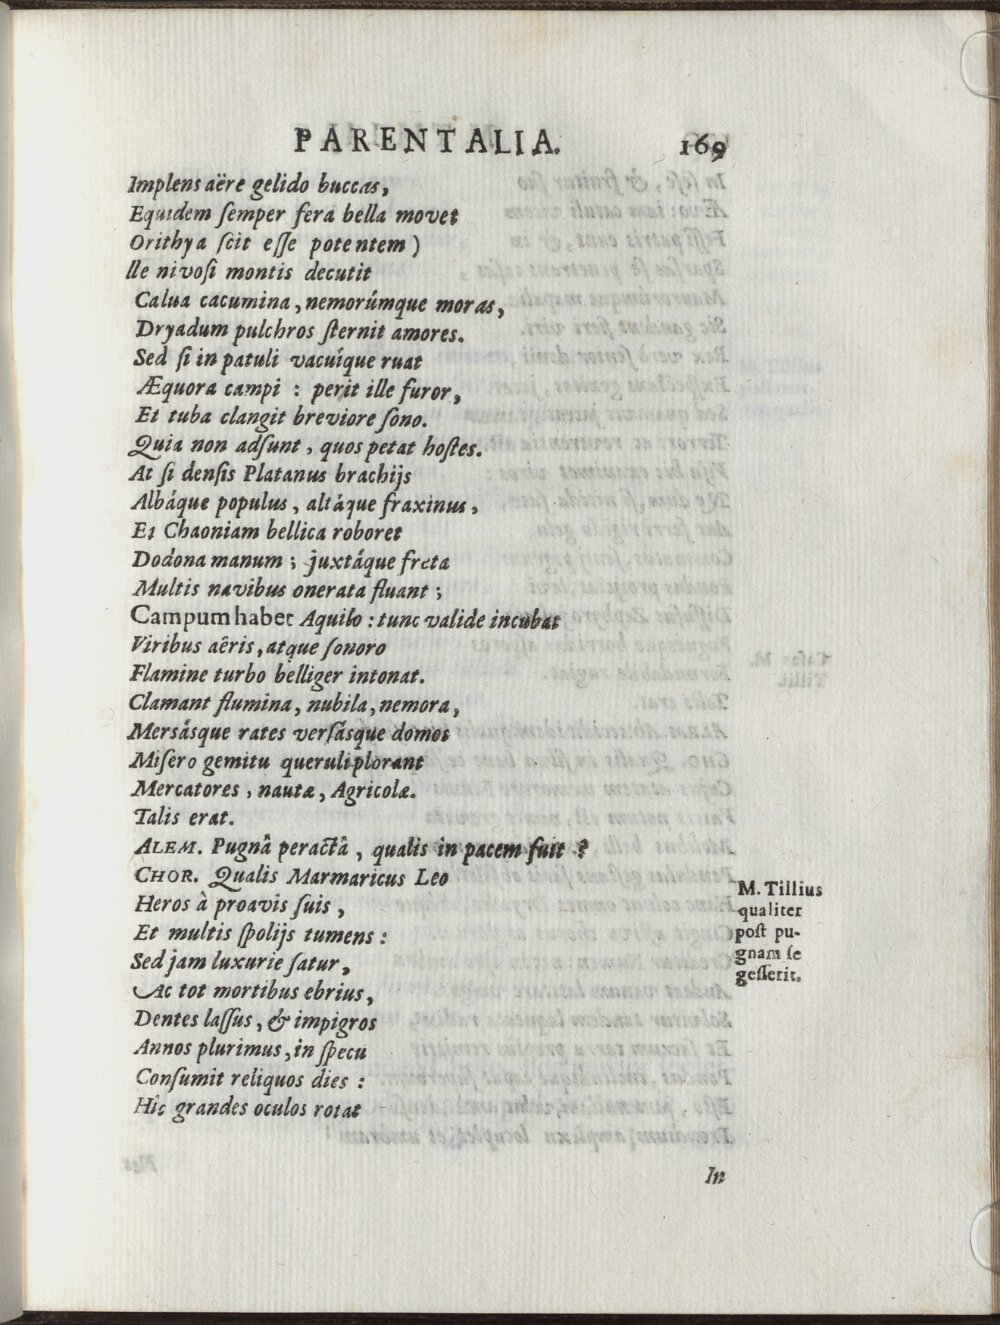 PARENTALIA. 169
Implens aëre gelido buccas,
Equidem ſemper fera bella movet
Orithya ſcit eſſe potentem)
lle nivoſi montis decutit
Calua cacumina, nemorúmque moras,
Dryadum pulchros ſternit amores.
Sed ſi in patuli vacuíque ruat
Æquora campi : perit ille furor,
Et tuba clangit breviore ſono.
Quia non adſunt, quos petat hoſtes.
At ſi denſis Platanus brachijs
Albáque populus, altáque fraxinus,
Et Chaoniam bellica roboret
Dodona manum ; juxtáque freta
Multis navibus onerata fluant ;
Campum habet Aquilo : tunc valide incubat
Viribus aëris, atque ſonoro
Flamine turbo belliger intonat.
Clamant flumina, nubila, nemora,
Mersásque rates verſásque domos
Miſero gemitu queruli plorant
Mercatores, nautæ, Agricolæ.
Talis erat.
ALEM. Pugnâ peractâ, qualis in pacem fuit ?
CHOR. Qualis Marmaricus Leo
Heros à proavis ſuis,
Et multis ſpolijs tumens :
Sed jam luxurie ſatur,
Ac tot mortibus ebrius,
Dentes laſſus, & impigros
Annos plurimus, in ſpecu
Conſumit reliquos dies :
Hic grandes oculos rotat
M. Tillius
qualiter
poſt pu-
gnam ſe
geſſerit.
In